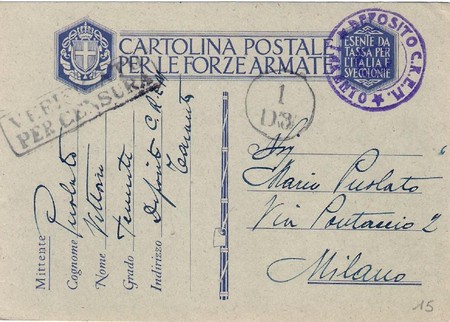 CARTOLINA POSTALE
PER LE FORZE ARMATE
ESENTE DA
TASSA PER
L'ITALIA E
SVE COLONIE
DEPOSITO C.R.E.M.
PER CENSURA
1
D3
Mittente
Cognome Pusolato
Nome Vittorio
Grado Tenente
Indirizzo Deposito C.R.E.M.
Taranto
Mario Pusolato
Via Pontaccio 2
Milano
15